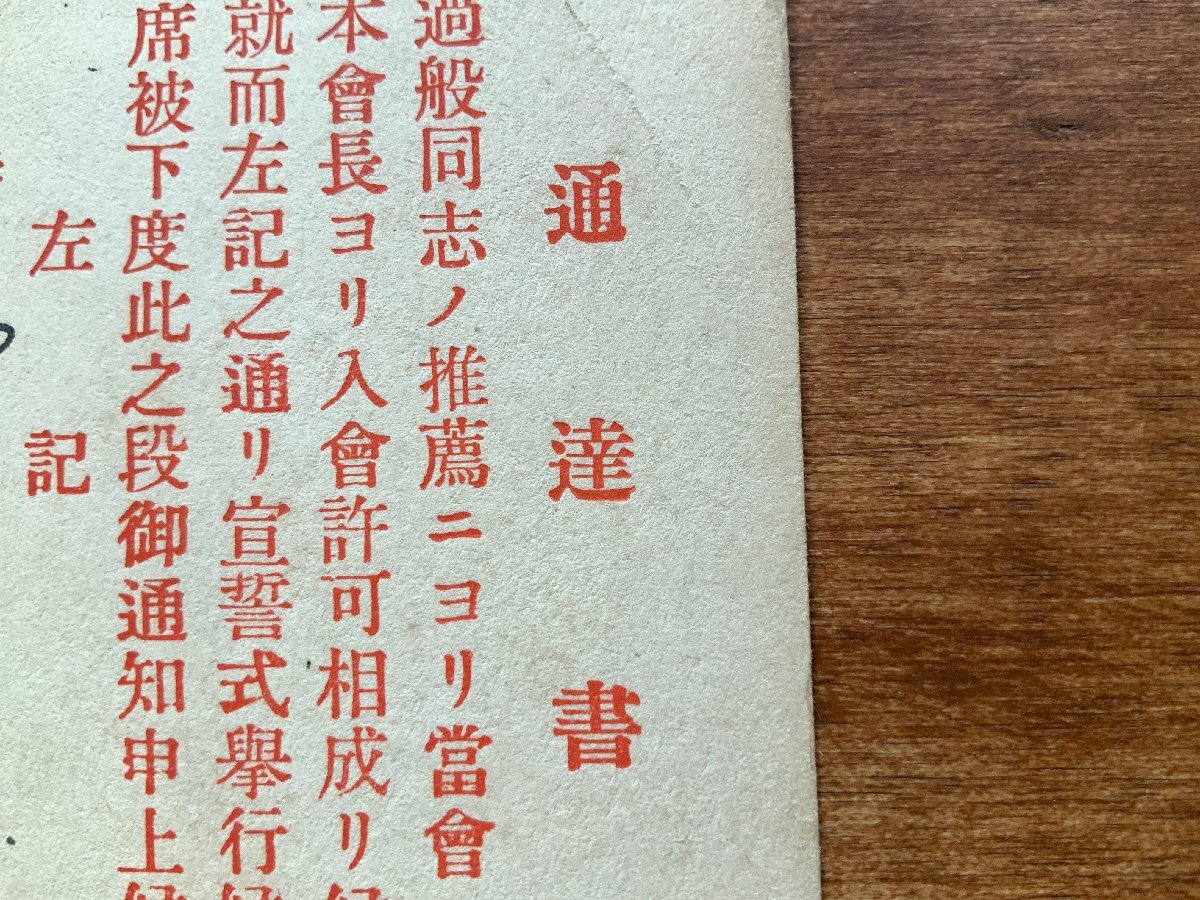 通達書
過般同志ノ推薦ニヨリ當會
本會長ヨリ入會許可相成リ
就而左記之通リ宣誓式擧行
席被下度此之段御通知申上
左記